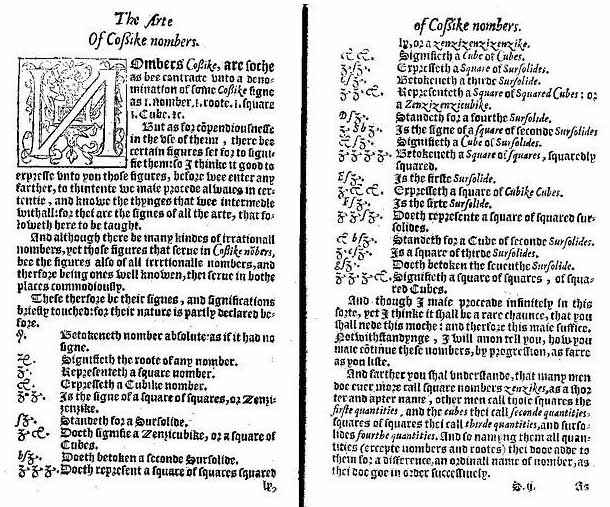 The Arte
Of Coſsike nombers.
NOmbers Coſsike, are ſoche
as bee contracte vnto a deno-
mination of ſome Coſsike ſigne
as 1. nomber, 1. roote, 1. ſquare
1. Cube. ꝛc.
But as for cōpendiouſneſſe
in the vſe of theim, there bee
certain figures ſet for to ſigni-
fie theim: ſo I thinke it good to
expreſſe vnto you thoſe figures, before wee enter any
farther, to thintente we maie procede alwaies in cer-
tentie, and knowe the thynges that wee intermedle
withall: for thei are the ſignes of all the arte, that fo-
loweth here to be taught.
And although there be many kindes of irrationall
nombers, yet thoſe figures that ſerue in Coſsike nōbers,
bee the figures alſo of all irrationalle nombers, and
therfore being ones well knowen, thei ſerue in bothe
places commodiouſly.
Theſe therfore be their ſignes, and ſignifications
briefly touched: for their nature is partly declared be-
fore.
Betokeneth nomber abſolute: as if it had no
ſigne.
Signifieth the roote of any nomber.
ʒ. Repreſenteth a ſquare nomber.
Expreſſeth a Cubike nomber.
ʒ.ʒ. Is the ſigne of a ſquare of ſquares, or Zenzi-
zenzike.
ſʒ. Standeth for a Surſolide.
Doeth ſignifie a Zenzicubike, or a ſquare of
Cubes.
bſʒ. Doeth betoken a ſeconde Surſolide.
ʒ.ʒ.ʒ. Doeth repreſent a ſquare of ſquares ſquared
ly,
of Coſsike nombers.
ly, or a zenzizenzizenzike.
Signifieth a Cube of Cubes.
ʒ.ſʒ. Expreſſeth a Square of Surſolides.
Betokeneth a thirde Surſolide.
Repreſenteth a Square of Squared Cubes: or
a Zenzizenzicubike.
Standeth for a fourthe Surſolide.
ʒ.bſʒ. Is the ſigne of a ſquare of ſeconde Surſolides
Signifieth a Cube of Surſolides.
ʒ.ʒ.ʒ.ʒ. Betokeneth a Square of ſquares, ſquaredly
ſquared.
Is the firſte Surſolide.
Expreſſeth a ſquare of Cubike Cubes.
Is the ſixte Surſolide.
ʒ.ʒ.ſʒ. Doeth repreſente a ſquare of ſquared ſur-
ſolides.
Standeth for a Cube of ſeconde Surſolides.
Is a ſquare of thirde Surſolides.
Doeth betoken the ſeuenthe Surſolide.
Signifieth a ſquare of ſquares, of ſqua-
red Cubes.
And though I maie proceade infinitely in this
ſorte, yet I thinke it ſhall be a rare chaunce, that you
ſhall nede this moche: and therfore this maie ſuffice.
Notwithſtandynge, I will anon tell you, how you
maie cōtinue theſe nombers, by progreſſion, as farre
as you liſte.
And farther you ſhal vnderſtande, that many men
doe euer more call ſquare nombers zenzikes, as a ſhor
ter and apter name, other men call thoſe ſquares the
firſte quantities, and the cubes thei call ſeconde quantities,
ſquares of ſquares thei call thirde quantities, and ſurſo-
lides fourthe quantities. And ſo namyng them all quan-
tities (excepte nombers and rootes) thei doee adde to
them for a difference, an ordinall name of nomber, as
thei doe goe in order ſucceſſiuely.
S.ij. As